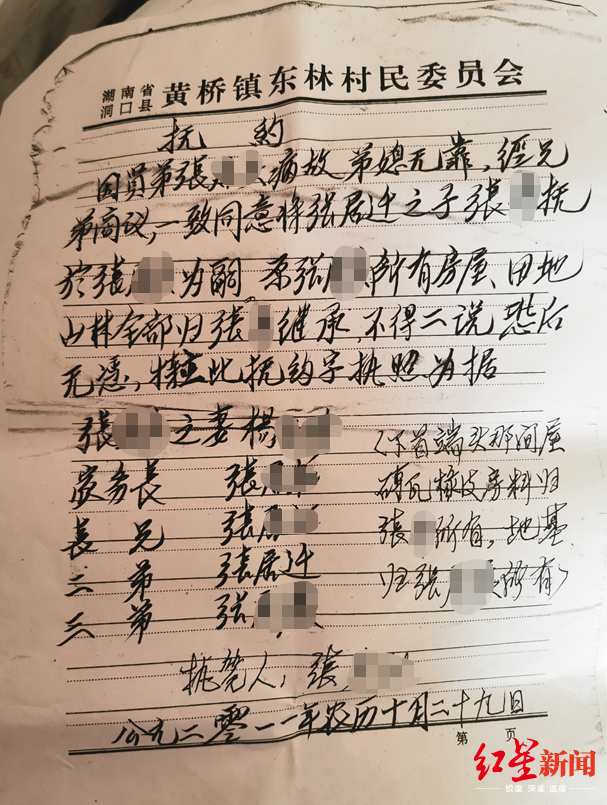 湖南省
洞口县
黄桥镇东林村民委员会
抚约
因员弟張 病故 弟媳无靠，經兄
弟商议，一致同意将张居迁之子張 抚
於張 为嗣 原张 所有房屋、田地
山林全部归張 继承，不得二说 恐后
无凭，特立此抚约字执照为据
張 之妻楊
長兄 張居
二弟 張居迁
三弟 张
（下首端头那间屋
砖瓦椽皮房料归
張 所有，地基
归張 所有）
执笔人：張
公元二零一一年农历十月二十九日
第 页
红星新闻
锐度 深度 温度